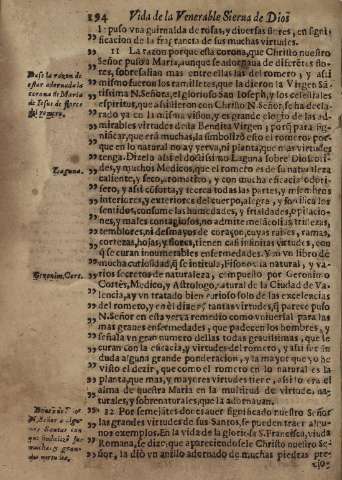 194 Vida de la Venerable Sierva de Dios
puso vna guirnalda de rosas, y diversas flores, en signi-
ficacion de la fragrancia de sus muchas virtudes.
11 La razon porque esta corona, que Christo nuestro
Señor puso à Maria, aunque se adornaua de diferētes flo-
res, sobresalian mas entre ellas las del romero, y assi
mismo fueron los ramilletes, que la dieron la Virgen Sã-
tissima N. Señora, el glorioso San Joseph, y los celestiales
espiritus, que assistieron con Christo N. Señor, se ha decla-
rado ya en la misma vision, y es grande elogio de las ad-
mirables virtudes de la Bendita Virgen; porq̃ para sig-
nificar, que erā muchas, la simbolizò esso el romero: por-
que en lo natural no ay yerva, ni planta, que mas virtudes
tenga. Dizelo assi el doctissimo Laguna sobre Dioscori-
des, y muchos Medicos, que el romero es de su naturaleza
caliente, y seco, aromatico, y con mucha eficacia odori-
fero, y assi cōforta, y
interiores, y exteriores del cuerpo, alegra, y fortifica los
sentidos, consume las humedades, y frialdades,
y males contagiosos, no admite melancolias, tristezas,
temblores, ni desmayos de coraçon, cuyas raizes, ramas,
cortezas, hojas, y flores, tienen casi infinitas virtudes, con
q̃ se curan inoumerables enfermedades. Y en vn libro de
mucha curiosidad, q̃ se intitula, Fisonomia natural, y va-
rios secretos de naturaleza, compuesto por Geronimo
Cortès, Medico, y Astrologo, natural de la Ciudad de Va-
lencia, ay vn tratado bien curioso solo de las excelencias
del romero, y en èl dize, tantas virtudes, q̃ parece puso
N. Señor en esta yerva remedio como vniuersal para las
mas graues enfermedades, que padecen los hombres, y
señala vn gran numero dellas todas grauissimas, que se
curan con la eficacia, y virtudes del romero, y assi fue sin
duda alguna grande ponderacion, y la mayor que yo he
visto el dezir, que como el romero en lo natural es la
planta, que mas, y mayores virtudes tiene, assi lo era el
alma de questra Maria en la multitud de virtudes, na-
turales, y sobrenaturales, que la adornauan.
12 Por semejātes dotes auer significado nuestro Señor
las grandes virtudes de sus Santos, se pueden traer algu-
nos exemplos. En la vida de la gloriosa S. Francisca, viuda
Romana, se dize, que apareciendosele Christo nuestro Se-
ñor, la diò vn anillo adornado de muchas piedras pre-
cio-
Dase la razon de
estar adornada la
corona de Maria
de Iesus de flores
del romero.
Laguna.
Geronim. Cort.
N. Señor à algu-
nos Santos con
que simbolizò sus
muchas, y gran-
des virtudes.